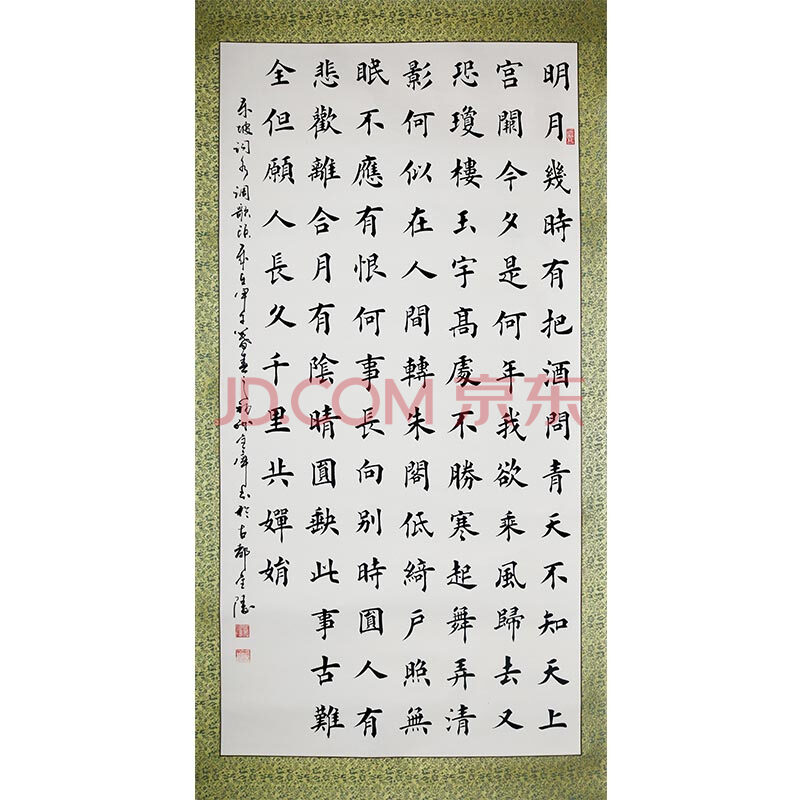 明月幾時有把酒問青天不知天上
宮闕今夕是何年我欲乘風歸去又
恐瓊樓玉宇高處不勝寒起舞弄清
影何似在人間轉朱閣低綺戶照無
眠不應有恨何事長向別時圓人有
悲歡離合月有陰晴圓缺此事古難
全但願人長久千里共嬋娟
東坡词水调歌頭
於古都金陵
JD.COM 京东